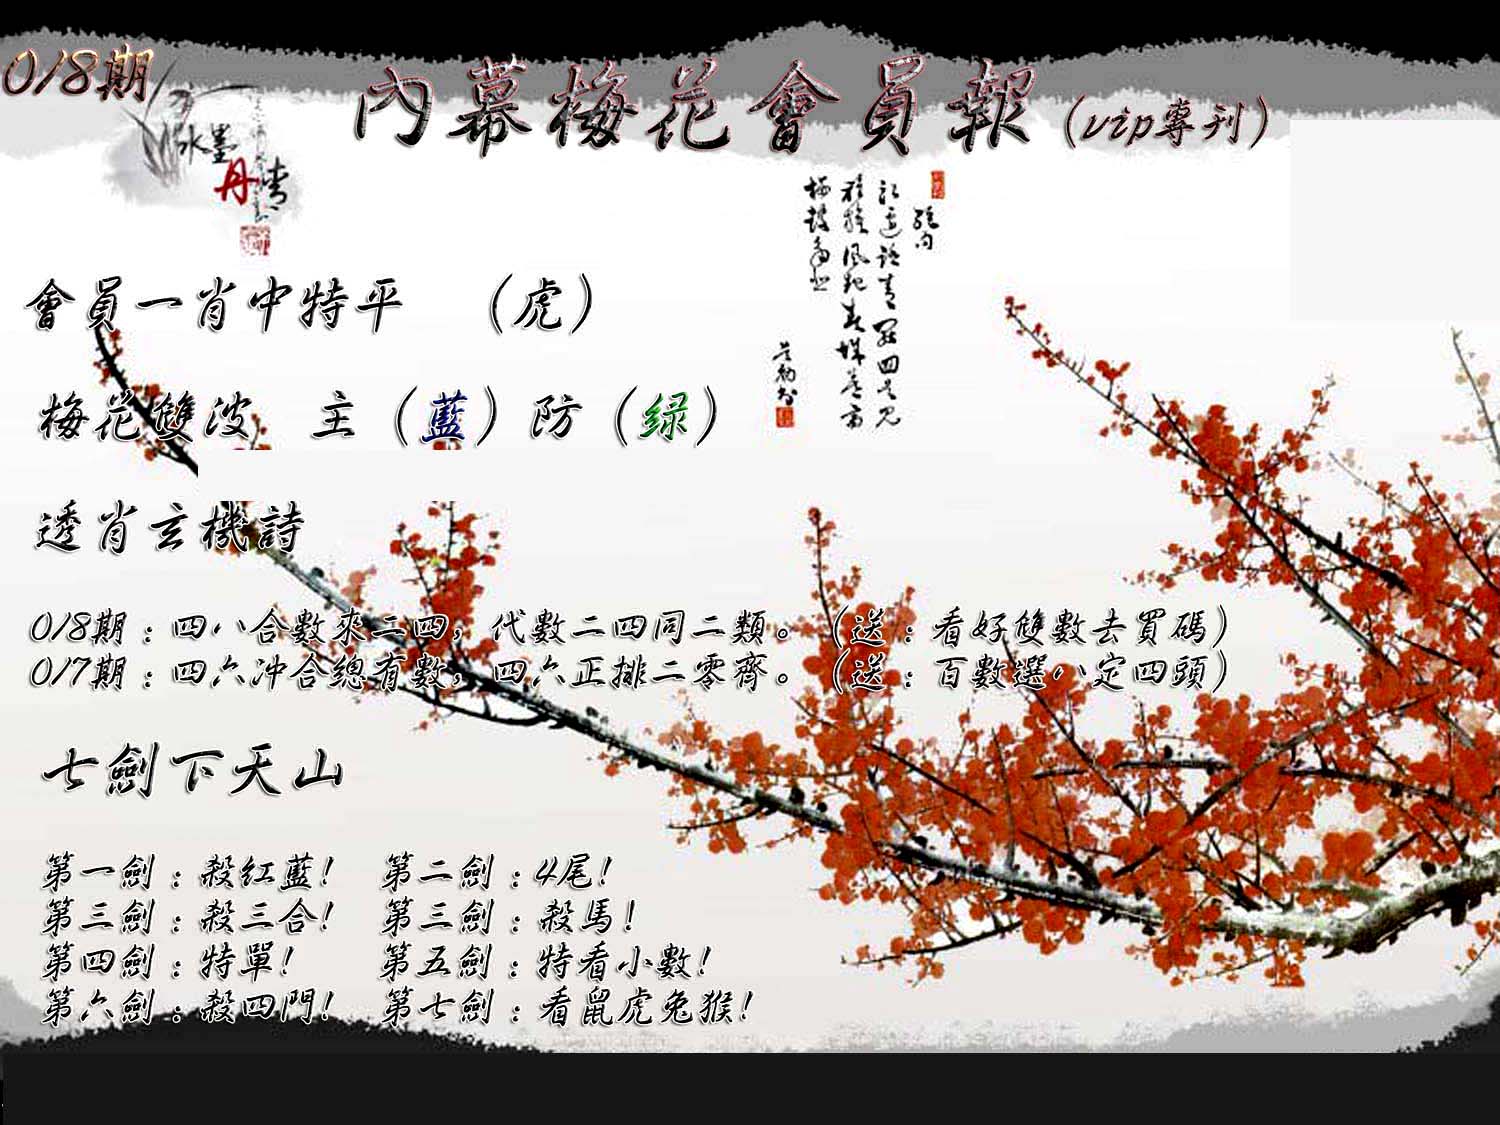 018期
內幕梅花會員報（vip專刊）
水墨
丹青
會員一肖中特平　（虎）
梅花雙波　主（藍）防（绿）
透肖玄機詩
018期：四八合數來二四，代數二四同二類。（送：看好雙數去買碼）
017期：四六冲合總有數，四六正排二零齊。（送：百數選八定四頭）
七劍下天山
第一劍：殺紅藍！　第二劍：4尾！
第三劍：殺三合！　第三劍：殺馬！
第四劍：特單！　第五劍：特看小數！
第六劍：殺四門！　第七劍：看鼠虎兔猴！